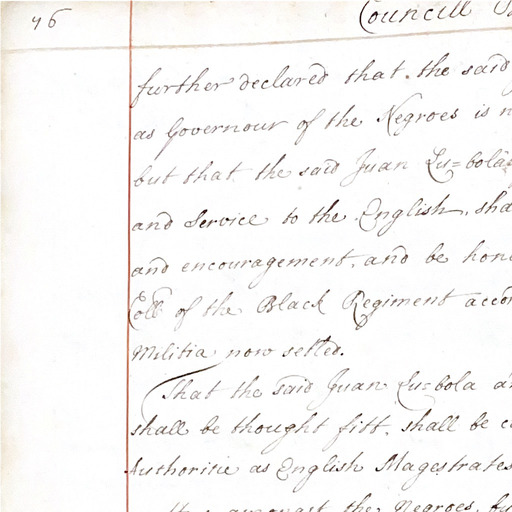 76 Councill
further declared that the said
as Governour of the Negroes is
but that the said Juan Lu=bola
and Service to the English, sha
and encouragement, and be hono
Coll of the Black Regiment accor
Militia now setled.
That the said Juan Lu=bola a
shall be thought fitt, shall be c
Authoritie as English Magestrates
amongst the Negroes,